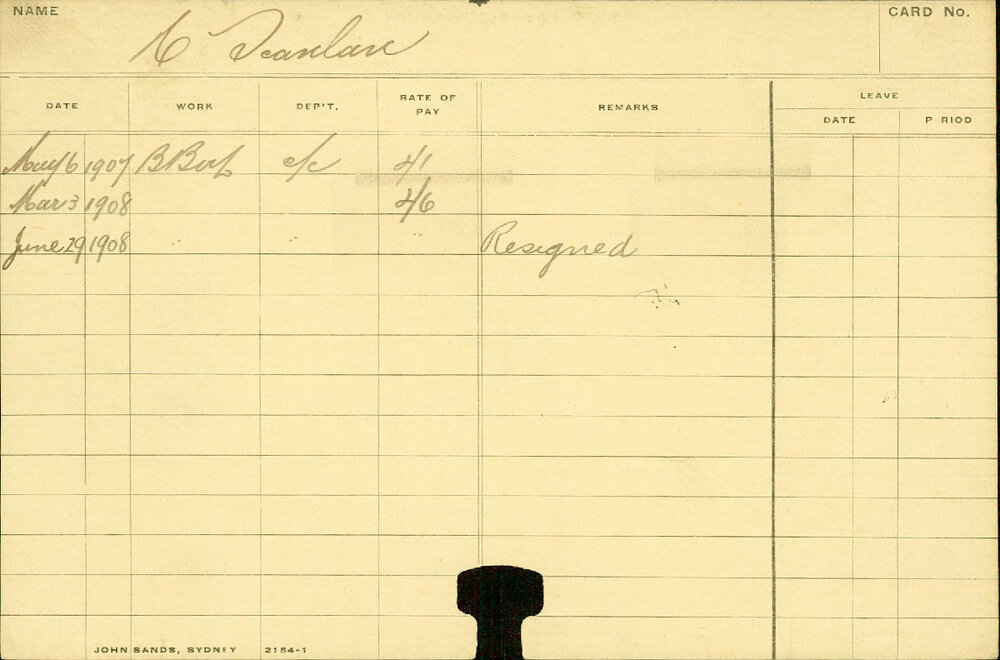 NAME
CARD No.
C Scanlan
DATE WORK DEP'T. RATE OF PAY REMARKS LEAVE
DATE P RIOD
May 6 1907 B Boy c/c 4/1
Mar 3 1908 4/6
June 29 1908 Resigned
JOHN SANDS, SYDNEY 2154-1